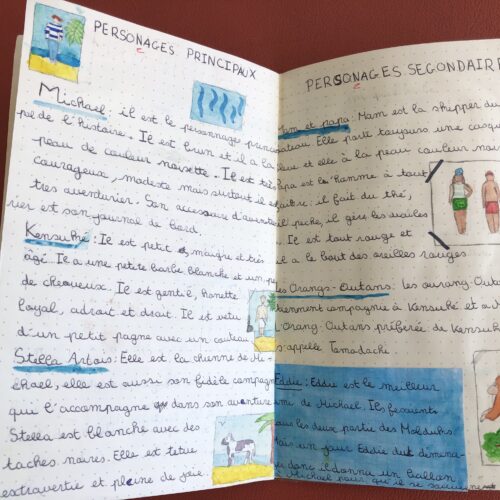 PERSONAGES PRINCIPAUX
Michael: il est le personnage princi
pe de l'histoire. Il est brun et il a la
peau de couleur noisette. Il est très
courageux, modeste mais surtout il est
très aventurier. Son accessoire d'aventu
rier est son journal de bord.
Kensuké: Il est petit maigre et très
âgé. Il a une petite barbe blanche et un pe
de cheveux. Il est gentil, honnête
loyal, adroit et droit. Il est vetu
d'un petit pagne avec un couteau
Stella Artois: Elle est la chienne de Mi-
chael, elle est aussi son fidèle compagn
qui l'accompagne dans son aventure
Stella est blanche avec des
taches noires. Elle est tetue
extravertie et pleine de joie.
PERSONAGES SEGONDAIRE
Mam et papa: Mam est la skipper du
bateau. Elle porte toujours une casqu
bleue et elle à la peau couleur noi
Papa est l'homme à tout
faire: il fait du thé,
il pêche, il gère les voiles
. Il est tout rouge et
il a le bout des oreilles rouges.
Les Orangs-Outans: Les ourang-Outan
tiennent compagnie à Kensuké et
L'Orang-Outans préférée de Kensuk
s'appelle Tomodachi.
Eddie: Eddie est le meilleur
ami de Michael. Ils
tous les deux partie des Moldarks
Mais un jour Eddie dut déména-
donc il donna un ballon
à Michael pour qu'il se souvienne